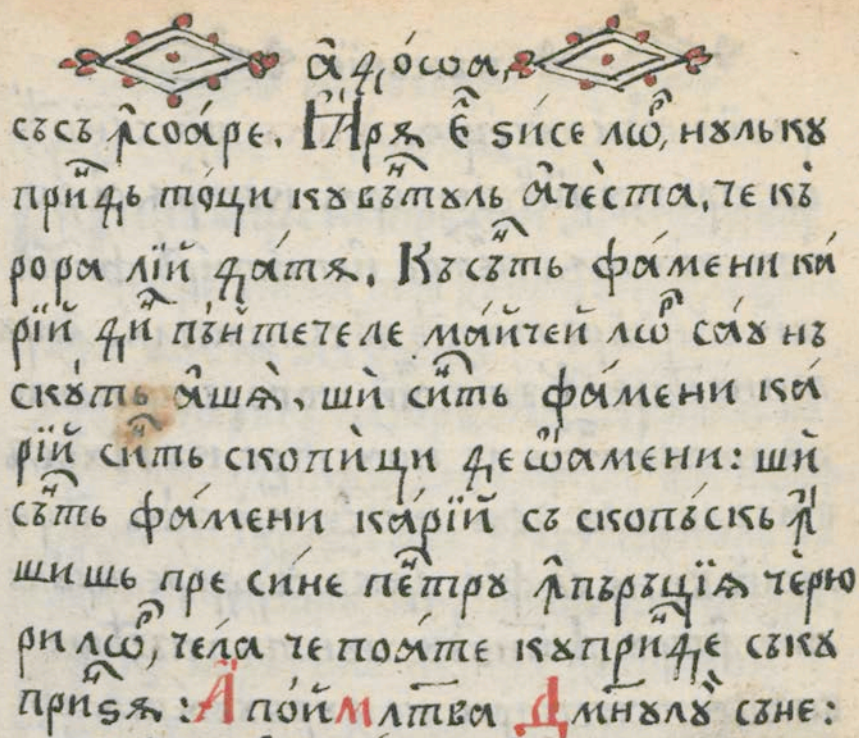 а҆ ДО́ѡа,
съсъ ꙟ҆соа́ре. Іа҆́рѧ є҆ ѕи́се лѡⷬ҇, нꙋлькꙋ
приⷩ҇дь то́ци кꙋвъⷩ҇тꙋль а҆чѐста, че къ̀
рора лїй да́тѧ. Късъⷩ҇ть фа́мени ка́
рїй диⷩ҇ пъ́нтечеле ма́йчей лѡⷬ҇ са́ꙋ нъ
скꙋ́ть а҆шѧ̀, шѝ сиⷩ҇ть фа́мени ка́
рїй сиⷩ҇ть скопѝци деѡ҆́амени: шѝ
съⷩ҇ть фа́мени ка́рїй съ скопъ́скь ꙟ҆
шишь пре си́не пеⷩ҇трꙋ ꙟ҆пъръцїѧ чѐрю
рилѡⷬ҇, че́ла че поа́те кꙋприⷩ҇де съкꙋ
приⷩ҇ѕѧ: А҆ по́й мл҃тва Дм҃нꙋлꙋй съне: